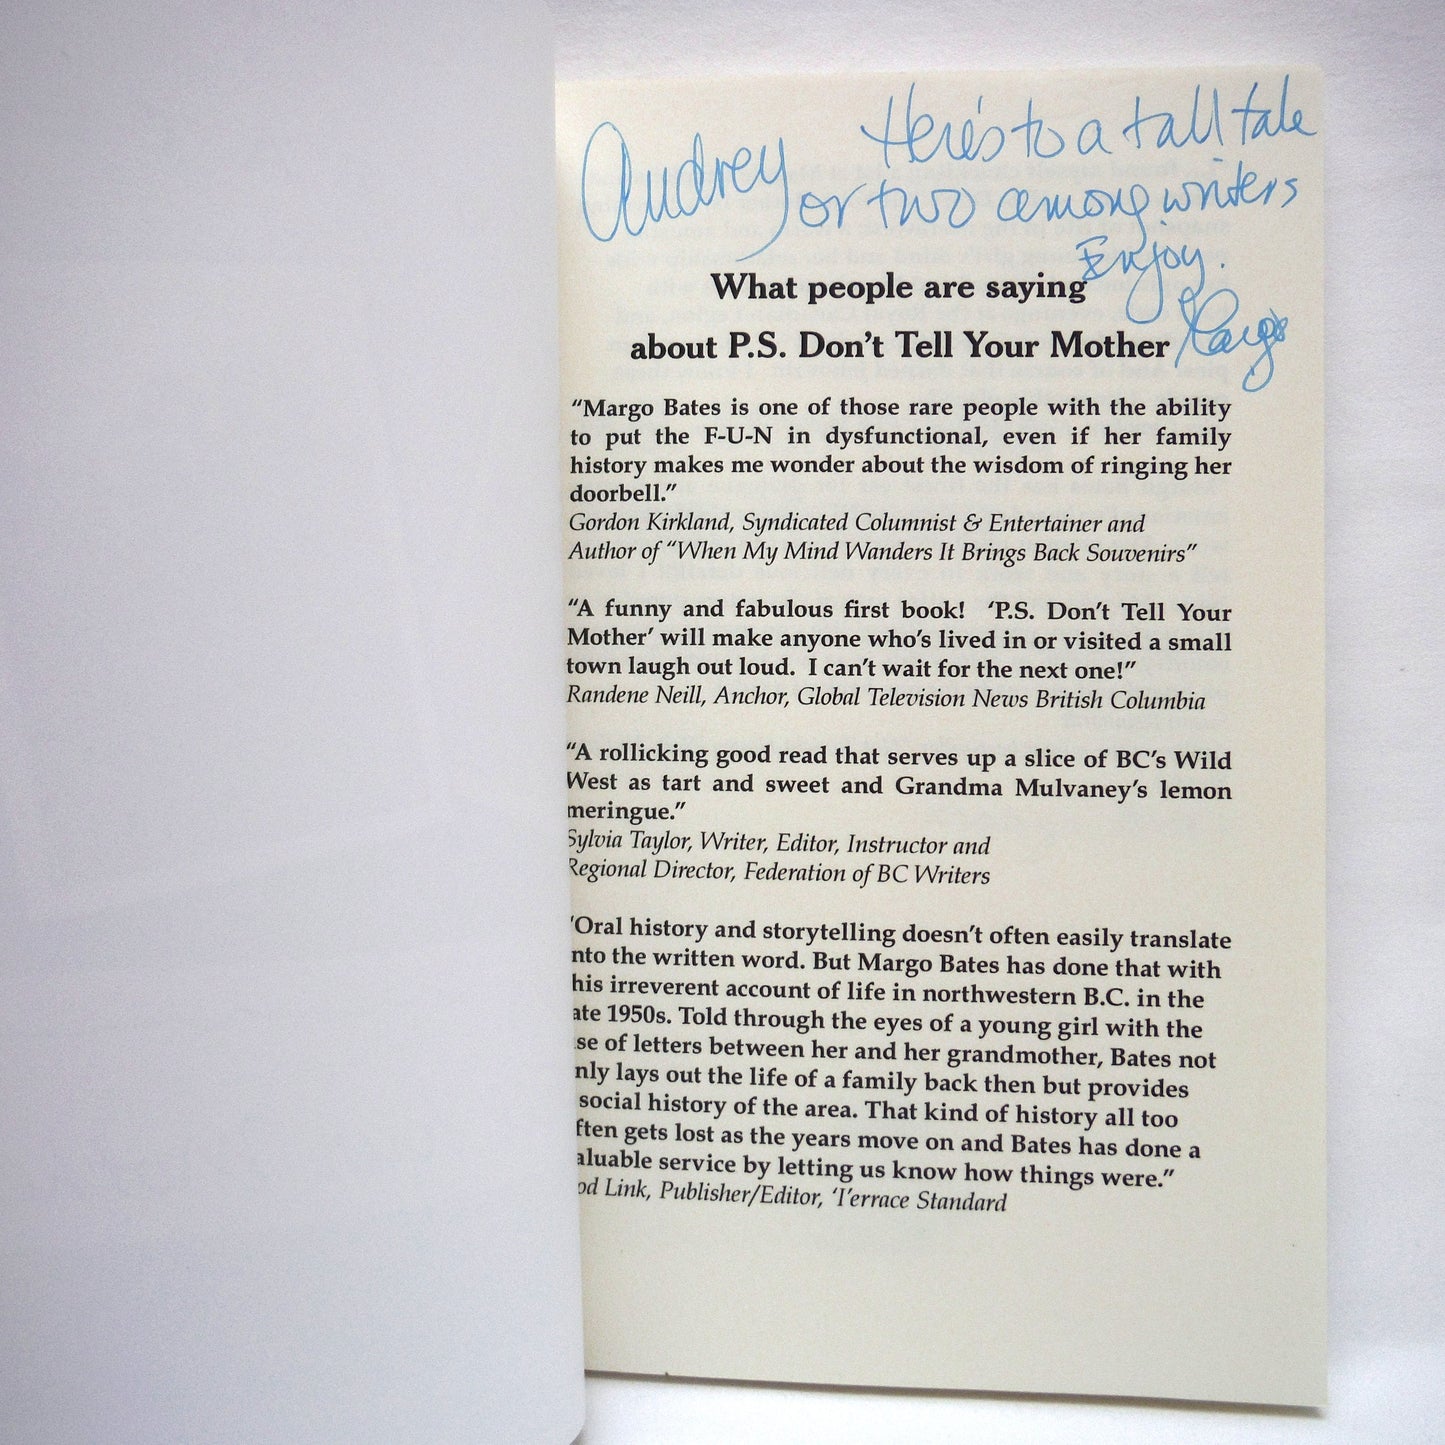 Audrey Here's to a tall tale
or two among writers
Enjoy.
Margo
What people are saying
about P.S. Don't Tell Your Mother
“Margo Bates is one of those rare people with the ability
to put the F-U-N in dysfunctional, even if her family
history makes me wonder about the wisdom of ringing her
doorbell.”
Gordon Kirkland, Syndicated Columnist & Entertainer and
Author of “When My Mind Wanders It Brings Back Souvenirs”
“A funny and fabulous first book! ‘P.S. Don't Tell Your
Mother’ will make anyone who's lived in or visited a small
town laugh out loud. I can't wait for the next one!”
Randene Neill, Anchor, Global Television News British Columbia
“A rollicking good read that serves up a slice of BC's Wild
West as tart and sweet and Grandma Mulvaney's lemon
meringue.”
Sylvia Taylor, Writer, Editor, Instructor and
Regional Director, Federation of BC Writers
'Oral history and storytelling doesn't often easily translate
nto the written word. But Margo Bates has done that with
his irreverent account of life in northwestern B.C. in the
ate 1950s. Told through the eyes of a young girl with the
se of letters between her and her grandmother, Bates not
nly lays out the life of a family back then but provides
social history of the area. That kind of history all too
ften gets lost as the years move on and Bates has done a
aluable service by letting us know how things were.”
od Link, Publisher/Editor, ‘I'errace Standard